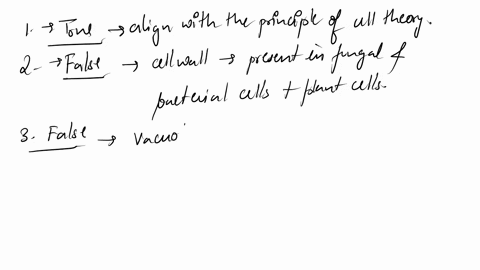 1. → True → align with the principle of cell theory.
2. → False → cell wall → present in fungal &
bacterial cells + plant cells.
3. False → vacuo